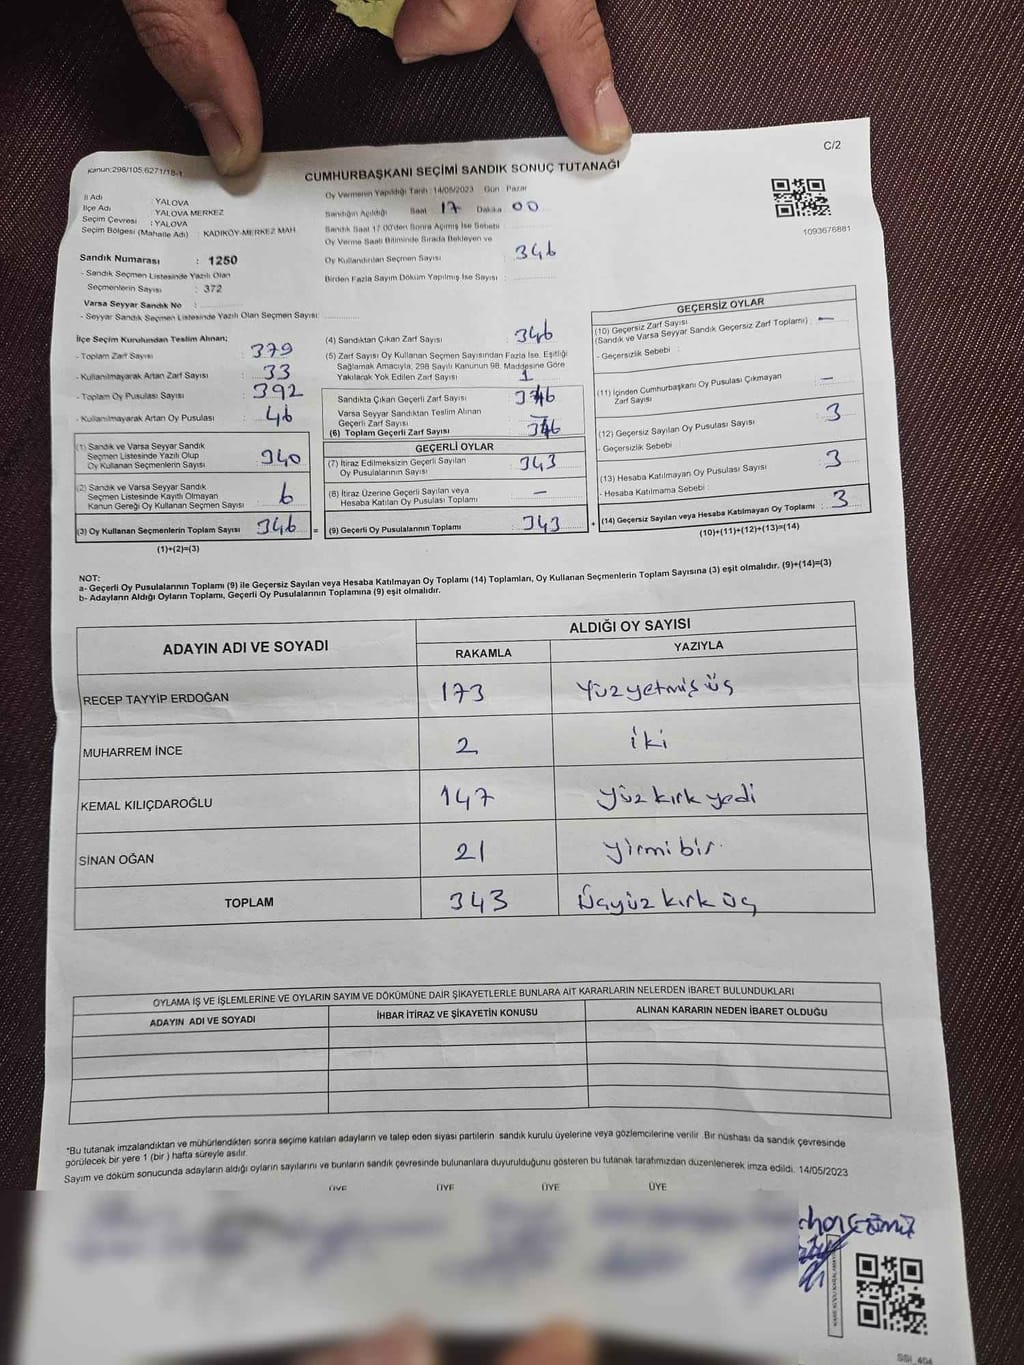 Kanun:298/105,6271/18-1
C/2
CUMHURBAŞKANI SEÇİMİ SANDIK SONUÇ TUTANAĞI
İl Adı : YALOVA
İlçe Adı : YALOVA MERKEZ
Seçim Çevresi : YALOVA
Seçim Bölgesi (Mahalle Adı) : KADIKÖY-MERKEZ MAH
Oy Vermenin Yapıldığı Tarih :14/05/2023 Gün : Pazar
Sandığın Açıldığı Saat 17 Dakika 00
Sandık Saat 17:00'den Sonra Açılmış İse Sebebi :
Oy Verme Saati Bitiminde Sırada Bekleyen ve
Oy Kullandırılan Seçmen Sayısı : 346
Birden Fazla Sayım Döküm Yapılmış İse Sayısı :
1093676881
Sandık Numarası : 1250
- Sandık Seçmen Listesinde Yazılı Olan
Seçmenlerin Sayısı : 372
Varsa Seyyar Sandık No :
- Seyyar Sandık Seçmen Listesinde Yazılı Olan Seçmen Sayısı:
İlçe Seçim Kurulundan Teslim Alınan;
- Toplam Zarf Sayısı : 379
- Kullanılmayarak Artan Zarf Sayısı : 33
- Toplam Oy Pusulası Sayısı : 392
- Kullanılmayarak Artan Oy Pusulası : 46
(1) Sandık ve Varsa Seyyar Sandık
Seçmen Listesinde Yazılı Olup
Oy Kullanan Seçmenlerin Sayısı : 340
(2) Sandık ve Varsa Seyyar Sandık
Seçmen Listesinde Kayıtlı Olmayan
Kanun Gereği Oy Kullanan Seçmen Sayısı : 6
(3) Oy Kullanan Seçmenlerin Toplam Sayısı : 346
(1)+(2)=(3)
(4) Sandıktan Çıkan Zarf Sayısı : 346
(5) Zarf Sayısı Oy Kullanan Seçmen Sayısından Fazla İse, Eşitliği
Sağlamak Amacıyla, 298 Sayılı Kanunun 98. Maddesine Göre
Yakılarak Yok Edilen Zarf Sayısı : 1
Sandıkta Çıkan Geçerli Zarf Sayısı : 346
Varsa Seyyar Sandıktan Teslim Alınan
Geçerli Zarf Sayısı : —
(6) Toplam Geçerli Zarf Sayısı : 346
GEÇERLİ OYLAR
(7) İtiraz Edilmeksizin Geçerli Sayılan
Oy Pusulalarının Sayısı : 343
(8) İtiraz Üzerine Geçerli Sayılan veya
Hesaba Katılan Oy Pusulası Toplamı : —
= (9) Geçerli Oy Pusulalarının Toplamı : 343 +
GEÇERSİZ OYLAR
(10) Geçersiz Zarf Sayısı
(Sandık ve Varsa Seyyar Sandık Geçersiz Zarf Toplamı) : —
- Geçersizlik Sebebi :
(11) İçinden Cumhurbaşkanı Oy Pusulası Çıkmayan
Zarf Sayısı : —
(12) Geçersiz Sayılan Oy Pusulası Sayısı : 3
- Geçersizlik Sebebi :
(13) Hesaba Katılmayan Oy Pusulası Sayısı : 3
- Hesaba Katılmama Sebebi :
(14) Geçersiz Sayılan veya Hesaba Katılmayan Oy Toplamı : 3
(10)+(11)+(12)+(13)=(14)
NOT:
a- Geçerli Oy Pusulalarının Toplamı (9) ile Geçersiz Sayılan veya Hesaba Katılmayan Oy Toplamı (14) Toplamları, Oy Kullanan Seçmenlerin Toplam Sayısına (3) eşit olmalıdır. (9)+(14)=(3)
b- Adayların Aldığı Oyların Toplamı, Geçerli Oy Pusulalarının Toplamına (9) eşit olmalıdır.
ADAYIN ADI VE SOYADI
ALDIĞI OY SAYISI
RAKAMLA YAZIYLA
RECEP TAYYİP ERDOĞAN 173 Yüz yetmiş üç
MUHARREM İNCE 2 iki
KEMAL KILIÇDAROĞLU 147 yüz kırk yedi
SİNAN OĞAN 21 yirmi bir
TOPLAM 343 Üçyüz kırk üç
OYLAMA İŞ VE İŞLEMLERİNE VE OYLARIN SAYIM VE DÖKÜMÜNE DAİR ŞİKAYETLERLE BUNLARA AİT KARARLARIN NELERDEN İBARET BULUNDUKLARI
ADAYIN ADI VE SOYADI İHBAR İTİRAZ VE ŞİKAYETİN KONUSU ALINAN KARARIN NEDEN İBARET OLDUĞU
*Bu tutanak imzalandıktan ve mühürlendikten sonra seçime katılan adayların ve talep eden siyasi partilerin sandık kurulu üyelerine veya gözlemcilerine verilir. Bir nüshası da sandık çevresinde
görülecek bir yere 1 (bir) hafta süreyle asılır.
Sayım ve döküm sonucunda adayların aldığı oyların sayılarını ve bunların sandık çevresinde bulunanlara duyurulduğunu gösteren bu tutanak tarafımızdan düzenlenerek imza edildi. 14/05/2023
ÜYE ÜYE ÜYE ÜYE